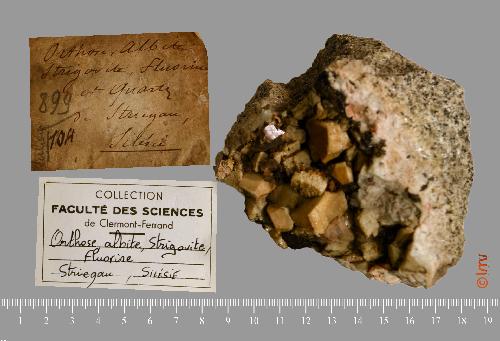 Orthose, Albite
Strigovite, Fluorine
et Quartz
de Striegau,
Silésie
899
104
COLLECTION
FACULTÉ DES SCIENCES
de Clermont-Ferrand
Orthose, albite, Strigovite,
Fluorine
Striegau, SILÉSIE
© lmv
1 2 3 4 5 6 7 8 9 10 11 12 13 14 15 16 17 18 19